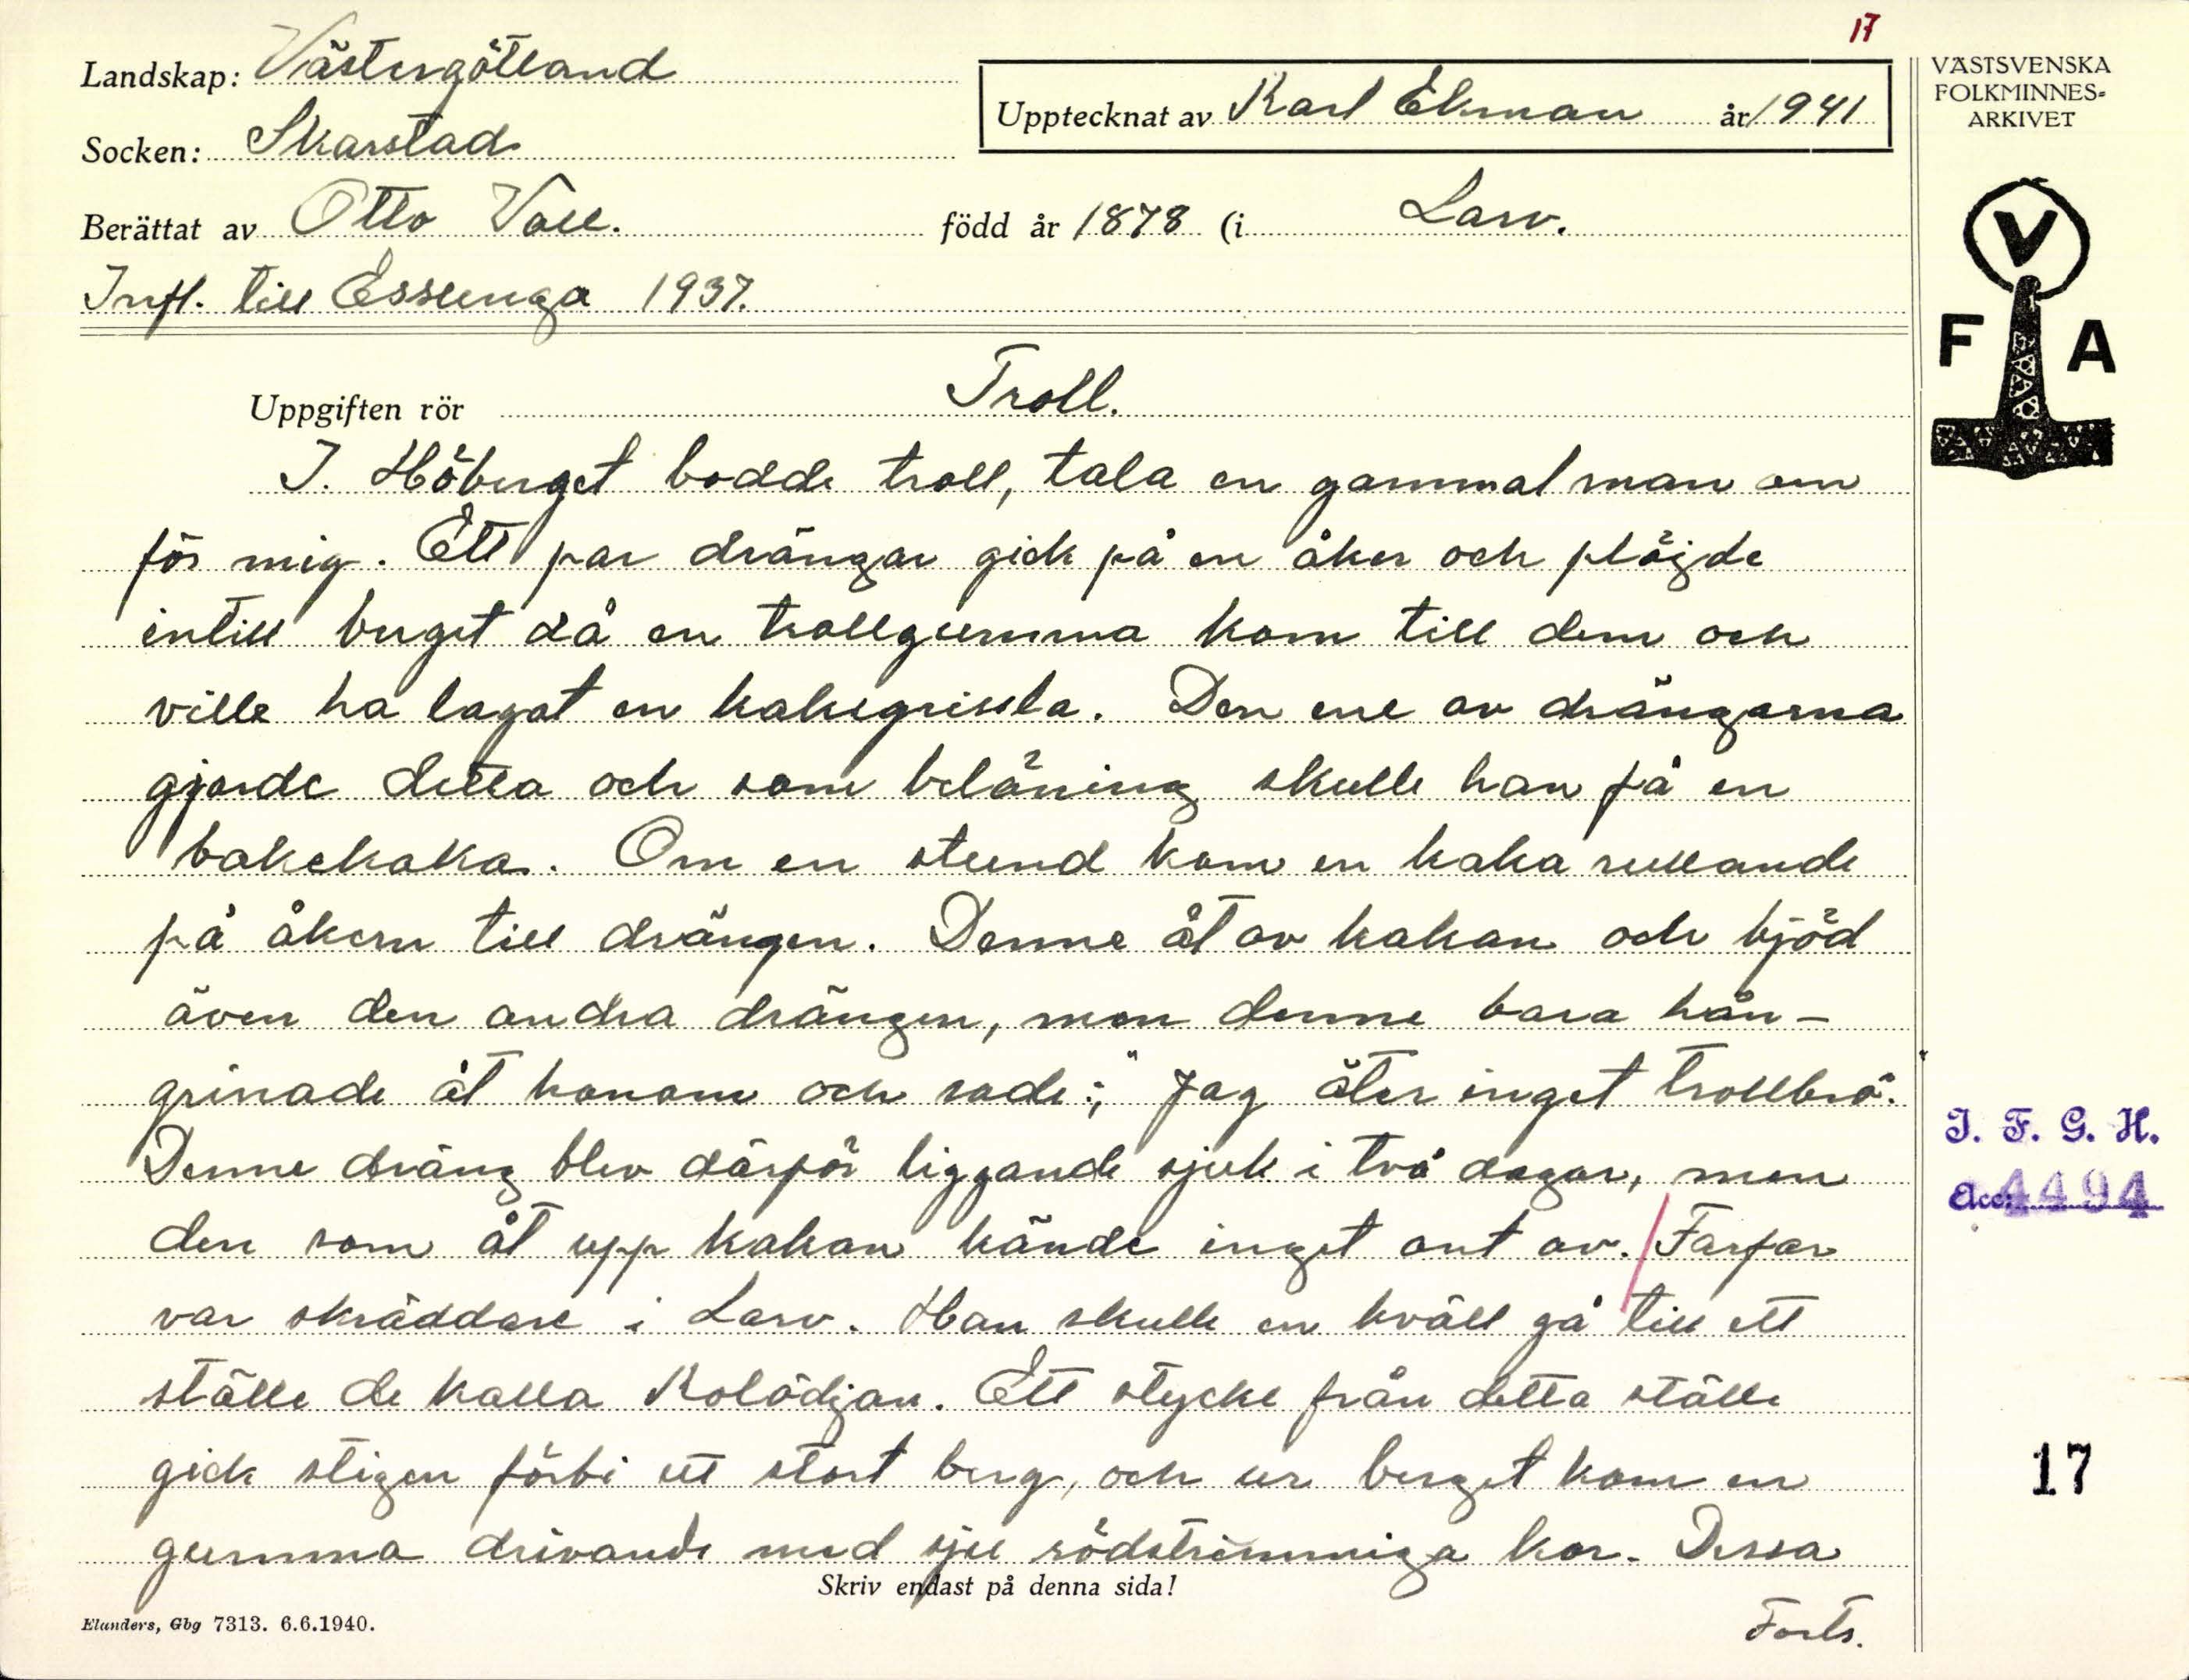 17
Landskap: Västergötland
Upptecknat av Karl Ekman år 1941
Socken: Skarstad
Berättat av Otto Vall. född år 1878 (i Larv.
Infl. till Essunga 1937.
Uppgiften rör Troll.
I. Höberget bodde troll, tala en gammal man om
för mig. Ett par drängar gick på en åker och plöjde
intill berget då en trollgumma kom till dem och
ville ha lagat en kakegrissla. Den ene av drängarna
gjorde detta och som belöning skulle han få en
bakekaka. Om en stund kom en kaka rullande
på åkern till drängen. Denne åt av kakan och bjöd
även den andra drängen, men denne bara hån-
grinade åt honom och sade:, "Jag äter inget trollbrö.
Denne dräng blev därför liggande sjuk i två dagar, men
den som åt upp kakan kände inget ont av. / Farfar
var skräddare i Larv. Han skulle en kväll gå till ett
ställe de kalla Kolödjan. Ett stycke från detta ställe
gick stigen förbi ett stort berg, och ur berget kom en
gumma drivande med sju rödstrimmiga kor. Dessa
Skriv endast på denna sida!
Forts.
Elanders, Gbg 7313. 6.6.1940.
VÄSTSVENSKA
FOLKMINNES-
ARKIVET
V
F A
I. F. G. H.
Acc: 4494
17